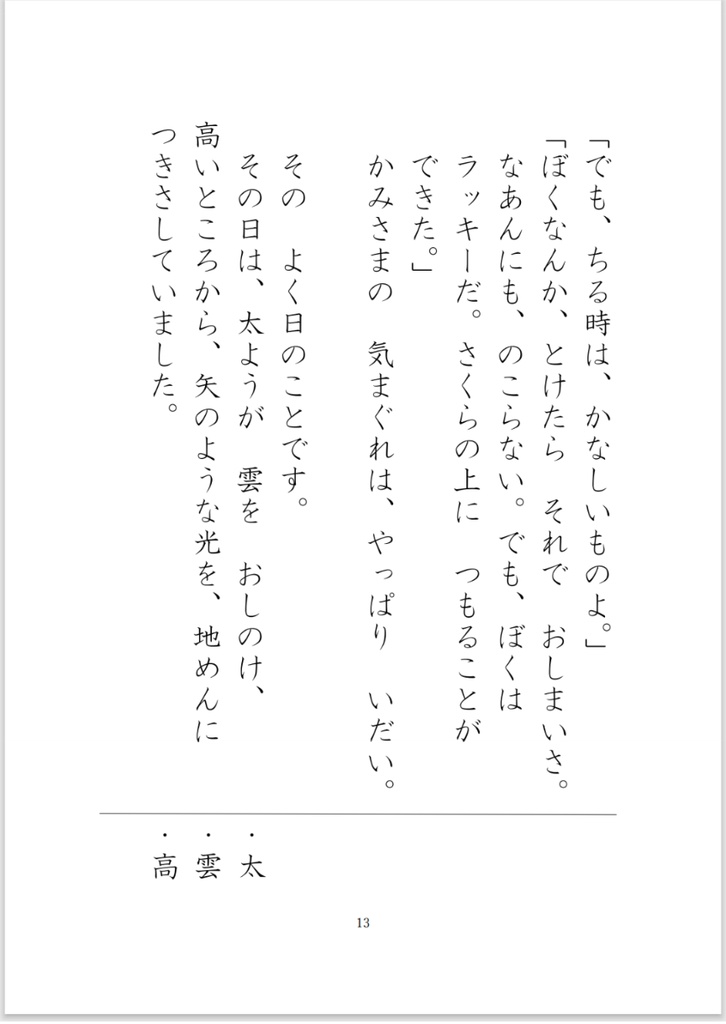 「でも、ちる時は、かなしいものよ。」
「ぼくなんか、とけたら　それで　おしまいさ。
なあんにも、のこらない。でも、ぼくは
ラッキーだ。さくらの上に　つもることが
できた。」
かみさまの　気まぐれは、やっぱり　いだい。
その　よく日のことです。
その日は、太ようが　雲を　おしのけ、
高いところから、矢のような光を、地めんに
つきさしていました。
・太
・雲
・高
13